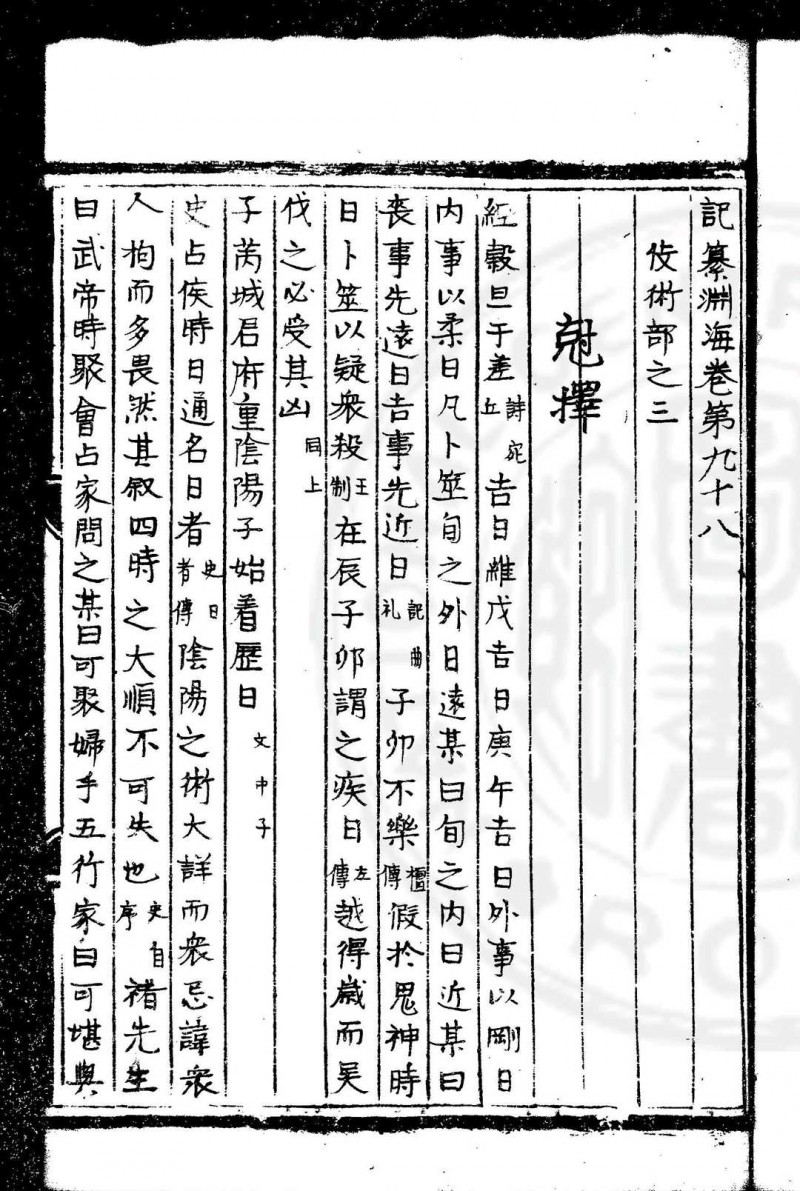 記纂淵海卷第九十八
伎術部之三
尅擇
經穀旦于差詩宛丘吉日維戊吉日庚午吉日外事以剛日
内事以柔日凡卜筮旬之外日遠某日旬之内日近某日
喪事先遠日吉事先近日記曲礼子卯不樂檀傳假於鬼神時
日卜筮以疑衆殺王制在辰子卯謂之疾日左傳越得歲而吴
伐之必受其凶同上
子芮城君府重陰陽子始着歷日文中子
史占侯時日通名日者史日者傳陰陽之術大詳而衆忌諱衆
人拘而多畏然其叙四時之大順不可失也史自序褚先生
曰武帝時聚會占家問之某日可聚婦乎五行家曰可堪輿